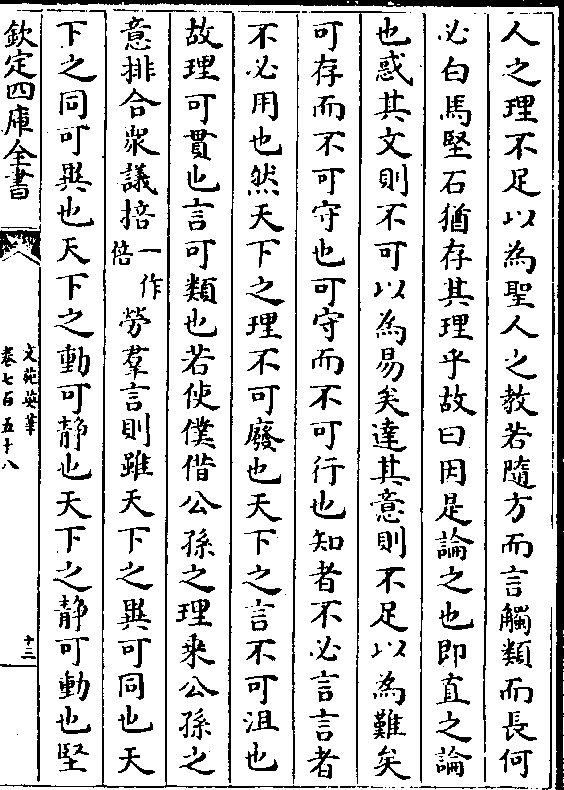 人之理不足以為聖人之教若隨方而言觸類而長何
必白馬堅石猶存其理乎故曰因是論之也即直之論
也惑其文則不可以為易矣達其意則不足以為難矣
可存而不可守也可守而不可行也知者不必言言者
不必用也然天下之理不可廢也天下之言不可沮也
故理可貫也言可類也若使僕借公孫之理乘公孫之
意排合衆議掊一作倍勞羣言則雖天下之異可同也天
下之同可異也天下之動可静也天下之静可動也堅
欽定四庫全書
文苑英華
卷七百五十八
十二